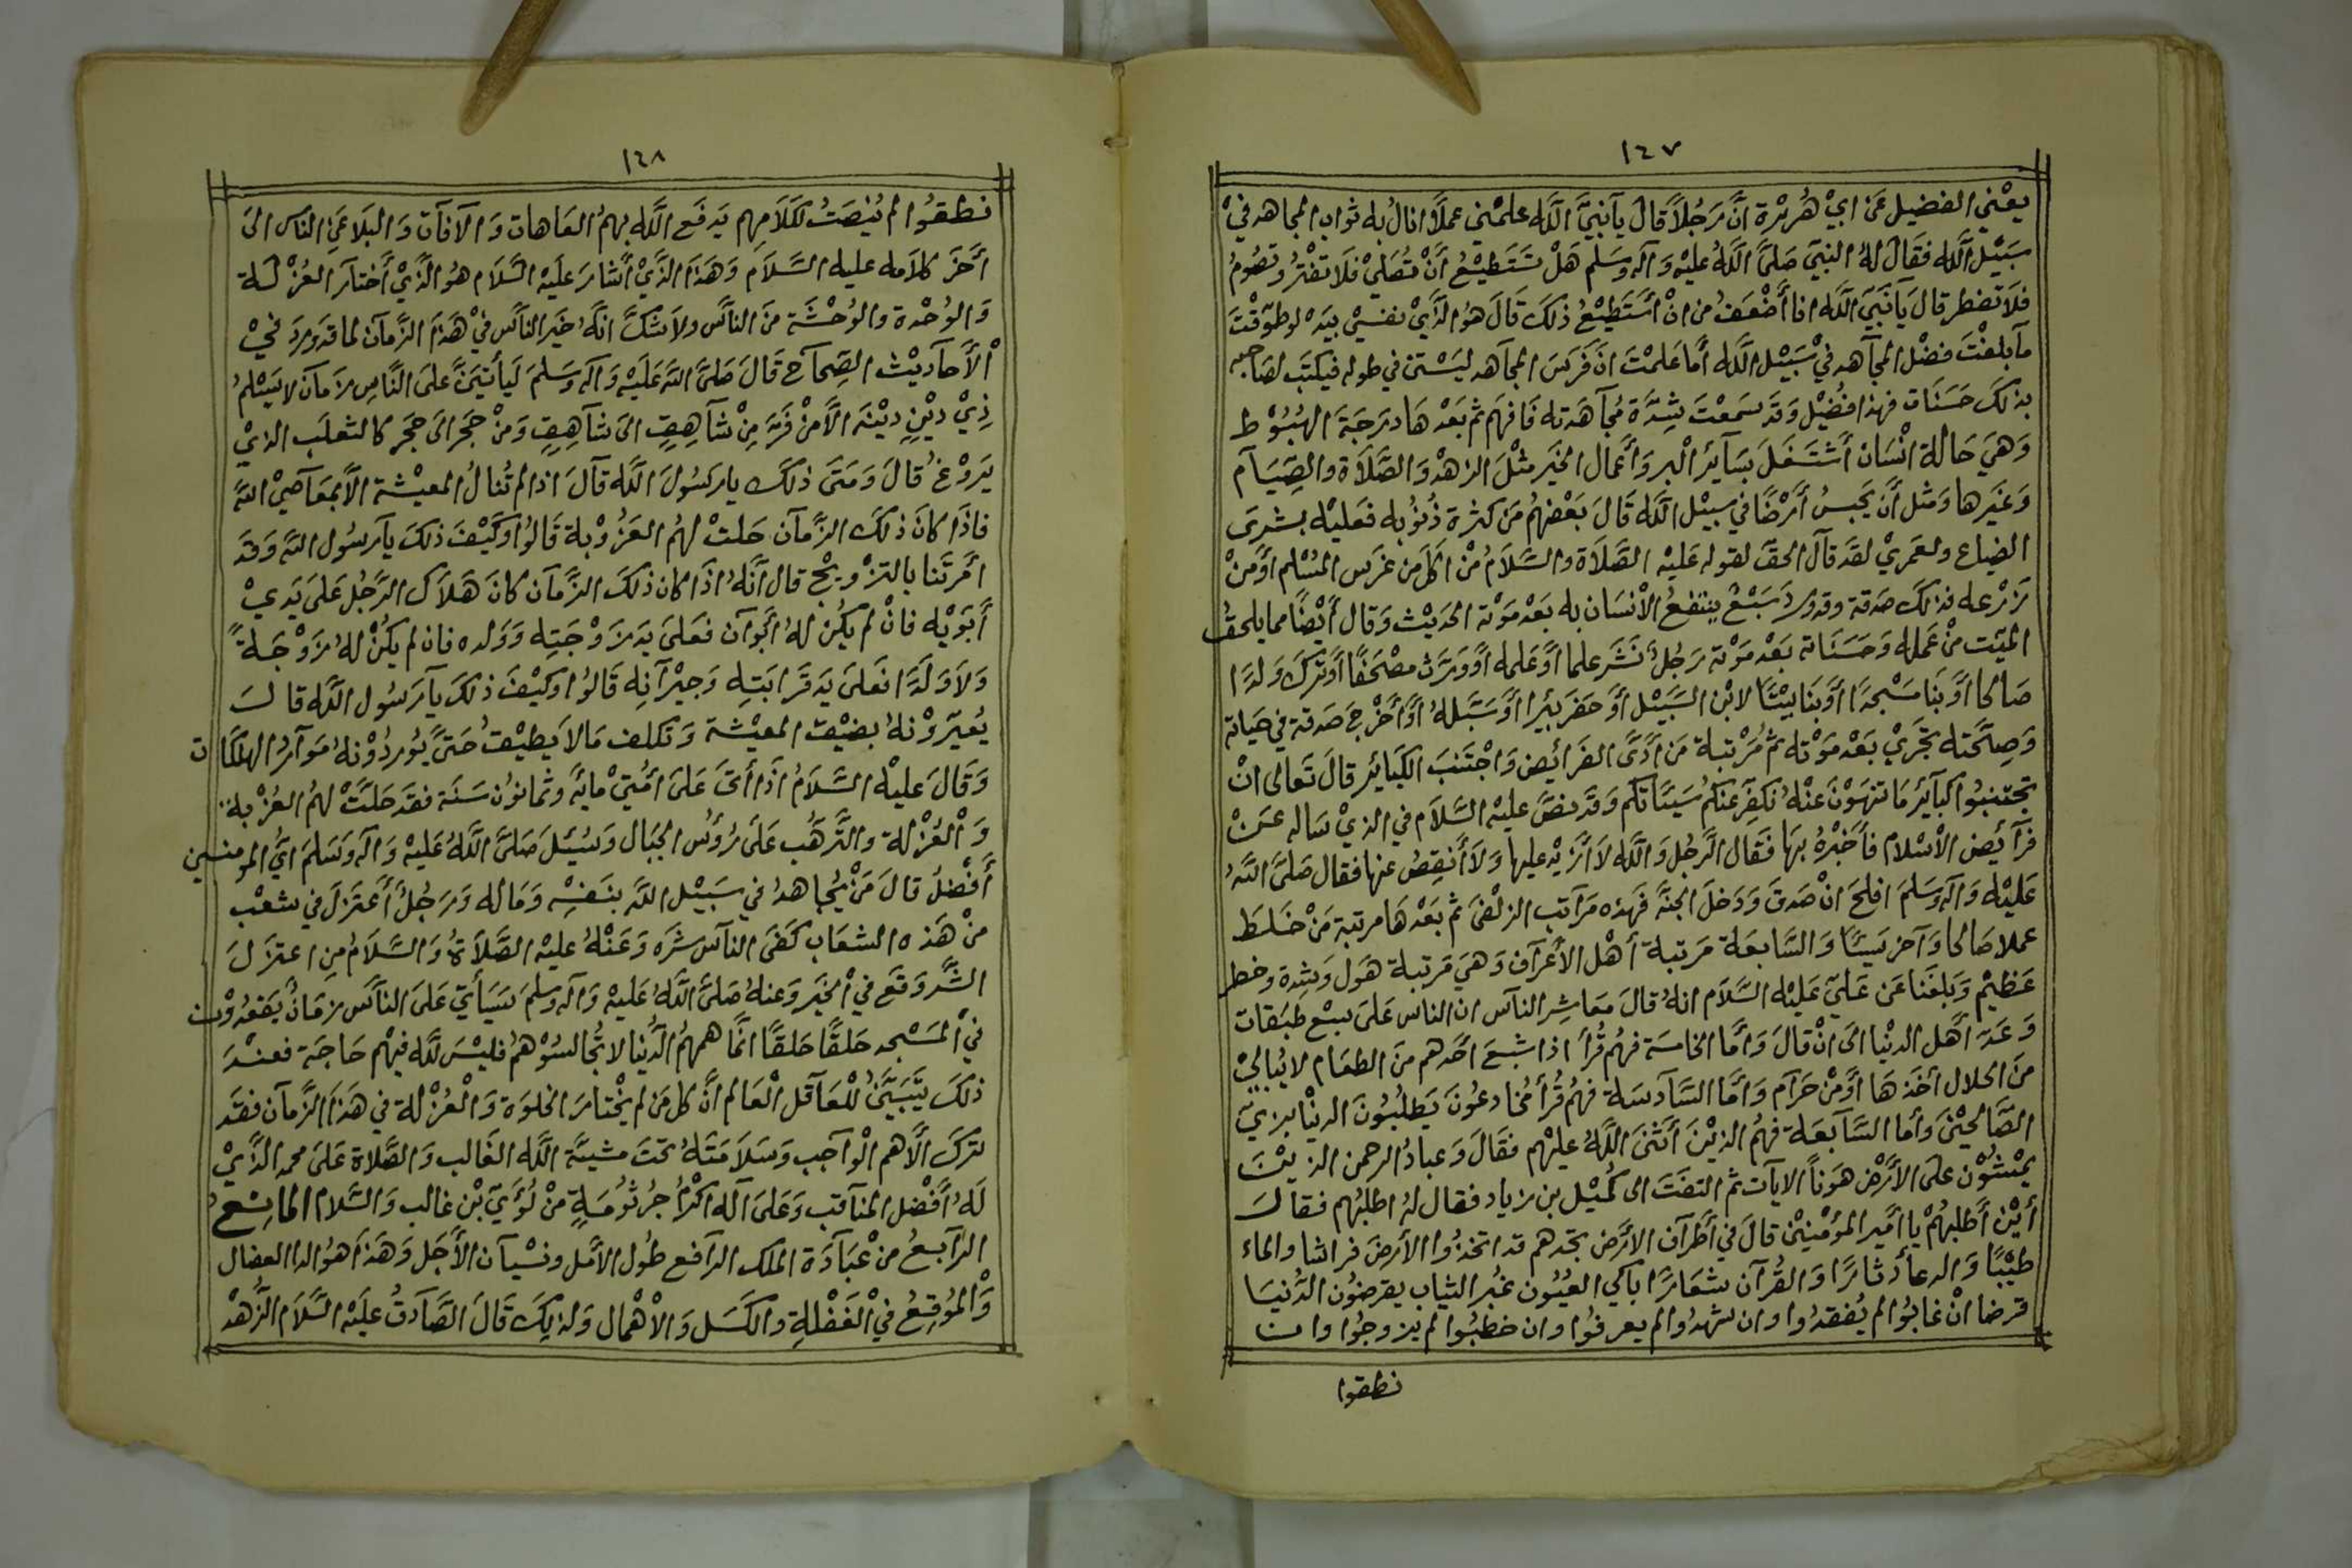 ١٤٧
يعني الفضيل عن ابي هريرة انّ رجلاً قال يآ نبيَّ اللّه علمني عملاً انال به ثواب المجاهد في
سبيل اللّه فقال له النبي صلّى اللّه عليه وآله وسلم هل تستطيع أن تصلي فلا تفتر وتصوم
فلا تفطر قال يآ نبي اللّه انا أضعف من ان أستطيع ذلك قال هو الذي نفسي بيده لو طوقت
مآ بلغت فضل المجآهد في سبيل اللّه أما علمت انّ فرس المجآهد ليستن في طوله فيكتب لصاحبه
بذلك حسنات فهذا فضيل وقد سمعت شدّة مجآهدته فافهم ثم بعدها درجة الهبوط
وهي حالة انسان أشتغل بسآئر البر وأعمال الخير مثل الزهد والصّلاة والصّيآم
وغيرها ومثل أن يحبس أرضًا في سبيل اللّه قال بعضهم من كثرة ذنوبه فعليه بشرى
الضياع ولعمري لقد قآل الحق لقوله عليه الصّلاة والسّلام من اكل من غرس المسلم أو من
زرعه فذلك صدقة وقد ورد سبع ينتفع الأنسان به بعد موته الحديث وقال أيضًا مما يلحق
الميّت من عمله وحسناته بعد موته رجل نشر علما أو علمه أو ورّث مصحفًا أو ترك ولدًا
صالحا أو بنا مسجدًا أو بنا بيتًا لابن السّبيل أو حفر بئرا أو سبّله أو أخرج صدقة في حياته
وصحّته تجري بعد موته ثم مرتبة من أدّى الفرآئض واجتنب الكبآئر قال تعالى ان
تجتنبوا كبآئر ما تنهون عنه نكفر عنكم سيئاتكم وقد نصّ عليه السّلام في الذي سآله عن
فرآئض الأسلام فأخبره بها فقال الرجل واللّه لا أزيد عليها ولا أنقص عنها فقال صلّى اللّه
عليه وآله وسلم افلح ان صدق ودخل الجنة فهذه مرآتب الزلفى ثم بعدها مرتبة من خلط
عملا صالحا وآخر سيئًا والسّابعة مرتبة أهل الأعرآف وهي مرتبة هول وشدة وخطر
عظيم وبلغنا عن علي عليه السّلام انه قال معاشر النآس ان الناس على سبع طبقات
وعدّ أهل الدنيا الى ان قال وأمّا الخامسة فهم قرأ اذا شبع أحدهم من الطعام لا يبالي
من الحلال أخذها أو من حرآم وأمّا السّآدسة فهم قرأ مخادعون يطلبون الدنيا بزيّ
الصّالحين وأما السّآبعة فهم الذين أثنى اللّه عليهم فقال وعباد الرحمن الذين
يمشون على الأرض هونا الايآت ثم التفت الى كميل بن زياد فقال له اطلبهم فقال
أين أطلبهم يا أمير المؤمنين قال في أطرآف الارض تجدهم قد اتخذوا الأرض فراشا والماء
طيّبًا والدعآ دثارًا والقرآن شعارًا باكي العيون غبر الثياب يقرضون الدّنيا
قرضا ان غابوا لم يفقدوا وان شهدوا لم يعرفوا وان خطبوا لم يزوجوا وان
نطقوا
١٤٨
نطقوا لم ينصت لكلامهم يدفع اللّه بهم العاهات والآفآت والبلا عن الناس الى
أخر كلامه عليه السّلام وهذا الذي أشار عليه السّلام هو الذي أختار العزلة
والوحدة والوحشة من النآس ولا شكّ انّه خير النآس في هذا الزّمآن لما قد ورد في
الأحآديث الصّحآح قال صلّى اللّه عليه وآله وسلم ليأتينّ على النّاس زمآن لا يسلم
ذي دين دينه الا من فرّ من شآهق الى شآهق ومن حجر الى حجر كالثعلب الذي
يروغ قال ومتى ذلك يا رسول اللّه قآل اذا لم تنال المعيشة الا بمعآصي اللّه
فاذا كان ذلك الزمآن حلت لهم العزوبة قالوا وكيف ذلك يآرسول اللّه وقد
امرتنا بالتزويج قال أنّه اذا كان ذلك الزّمآن كان هلاك الرّجل على يدي
أبويه فان لم يكن له أبوآن فعلى يد زوجته وولده فان لم يكن له زوجة
ولا ولدا فعلى يد قرابته وجيرآنه قالوا وكيف ذلك يآ رسول اللّه قال
يعيّرونه بضيق المعيشة وتكلف مالا يطيق حتّى يوردونه موآرد الهلكات
وقال عليه السّلام اذا أتى على امّتي مايه وثمانون سنة فقد حلّت لهم العزبة
والعزلة والتّرهب على رؤس الجبال وسئل صلّى اللّه عليه وآله وسلم ايّ المومنين
أفضل قال من يجاهد في سبيل اللّه بنفسه وماله ورجل أعتزل في شعب
من هذه الشعاب كفى النآس شره وعنه عليه الصّلاة والسّلام من اعتزل
الشّر وقع في الخير وعنه صلّى اللّه عليه وآله وسلم سيأتي على النآس زمان يقعدون
في المسجد حلقًا حلقًا انّما همهم الدّنيا لا تجالسوهم فليس للّه فيهم حاجة فعند
ذلك يتبيّن للعآقل العالم انّ كل من لم يختار الخلوة والعزلة في هذا الزّمآن فقد
ترك الاهم الوآجب وسلامته تحت مشيئة اللّه الغالب والصّلاة على محمد الذي
له أفضل المنآقب وعلى آله اكرم جرثومة من لؤي بن غالب والسّلام المانع
الرّآبع من عبآدة الملك الرآفع طول الأمل ونسيآن الأجل وهذا هو الدا العضال
والموقع في الغفلة والكسل والاهمال ولذلك قال الصّآدق عليه السّلام الزّهد